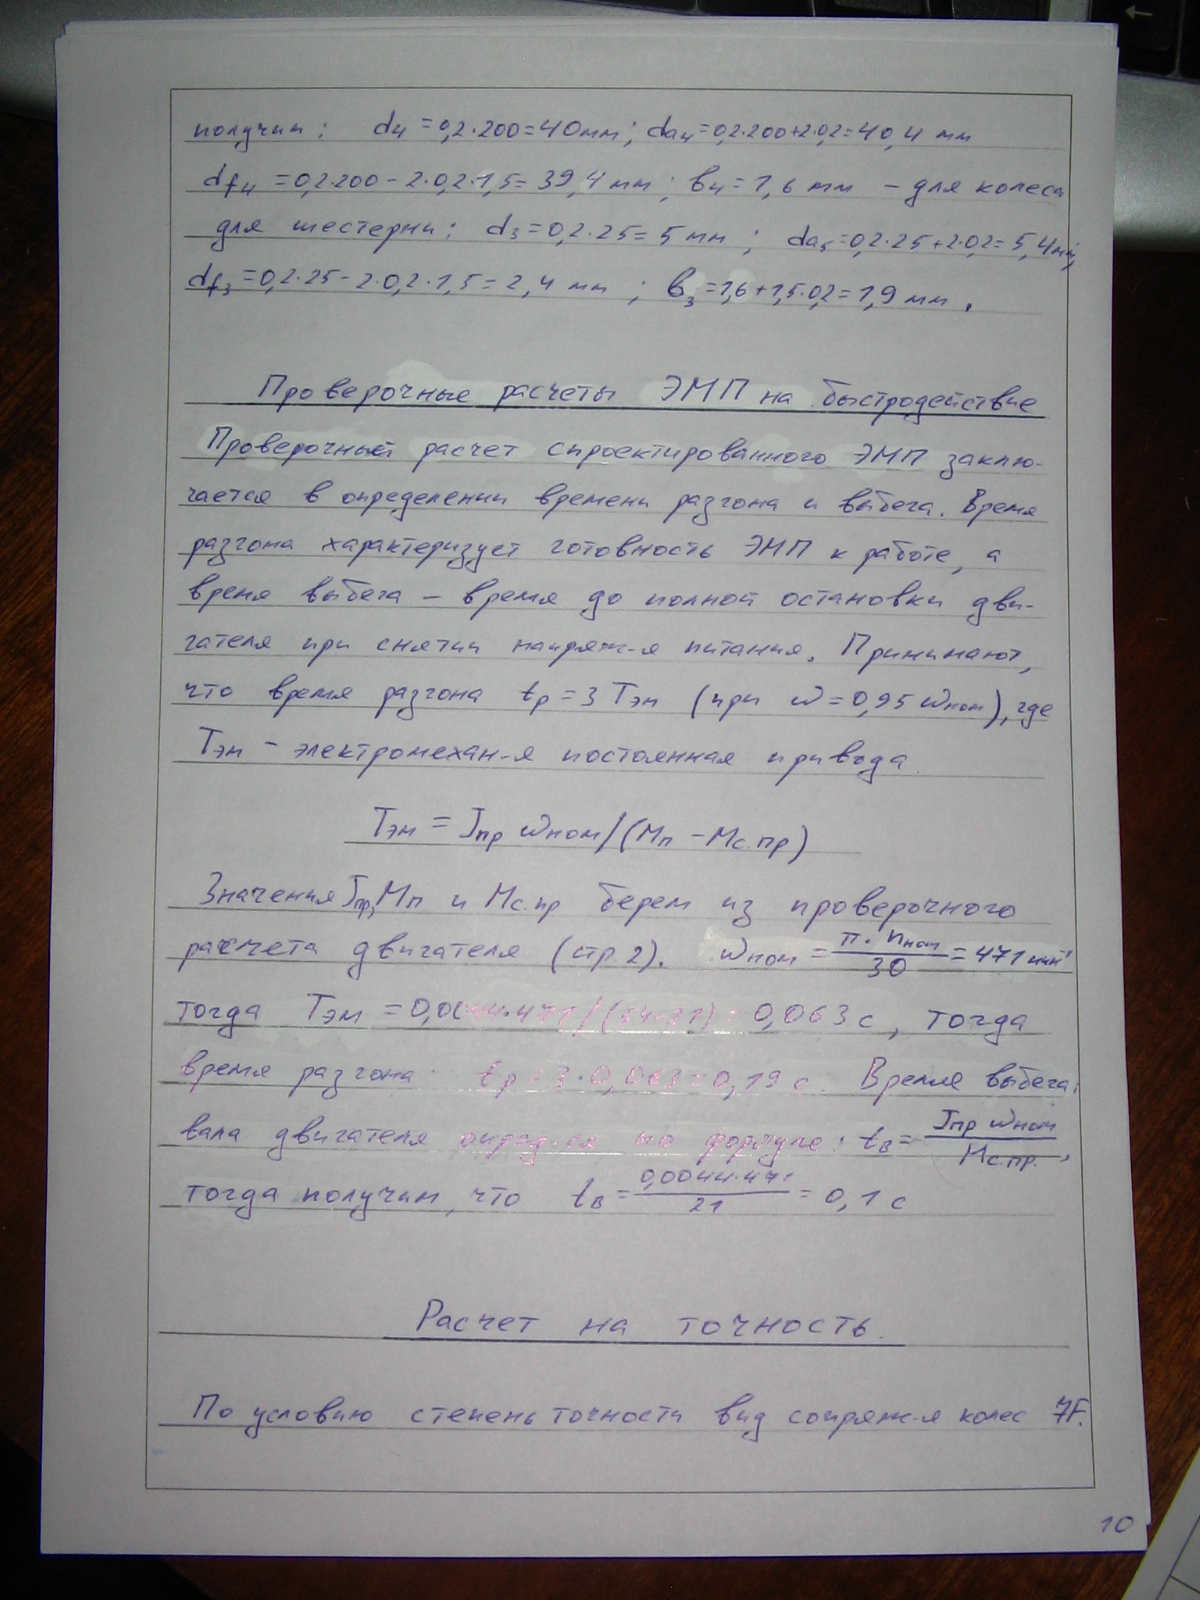 получим: d₄ = 0,2·200 = 40 мм; da₄ = 0,2·200+2·0,2 = 40,4 мм
df₄ = 0,2·200 − 2·0,2·1,5 = 39,4 мм; b₄ = 1,6 мм – для колеса
для шестерни: d₃ = 0,2·25 = 5 мм; da₃ = 0,2·25+2·0,2 = 5,4 мм;
df₃ = 0,2·25 − 2·0,2·1,5 = 2,4 мм; b₃ = 1,6+1,5·0,2 = 1,9 мм.
Проверочные расчеты ЭМП на быстродействие
Проверочный расчет спроектированного ЭМП заклю-
чается в определении времени разгона и выбега. Время
разгона характеризует готовность ЭМП к работе, а
время выбега – время до полной остановки дви-
гателя при снятии напряж-я питания. Принимают,
что время разгона tр = 3 Tэм (при ω = 0,95 ωном), где
Tэм – электромехан-я постоянная привода
Tэм = Jпр ωном/(Mп − Mс.пр)
Значения Jпр, Mп и Mс.пр берем из проверочного
расчета двигателя (стр 2). ωном = π·nном/30 = 471 мин⁻¹
тогда Tэм = 0,063 с, тогда
время разгона tр = 3·0,063 = 0,19 с. Время выбега
вала двигателя опред-ся по формуле: tв = Jпр ωном/Mс.пр.,
тогда получим, что tв = 0,0044·471/21 = 0,1 с
Расчет на точность.
По условию степень точности вид сопряж-я колес 7F.
10